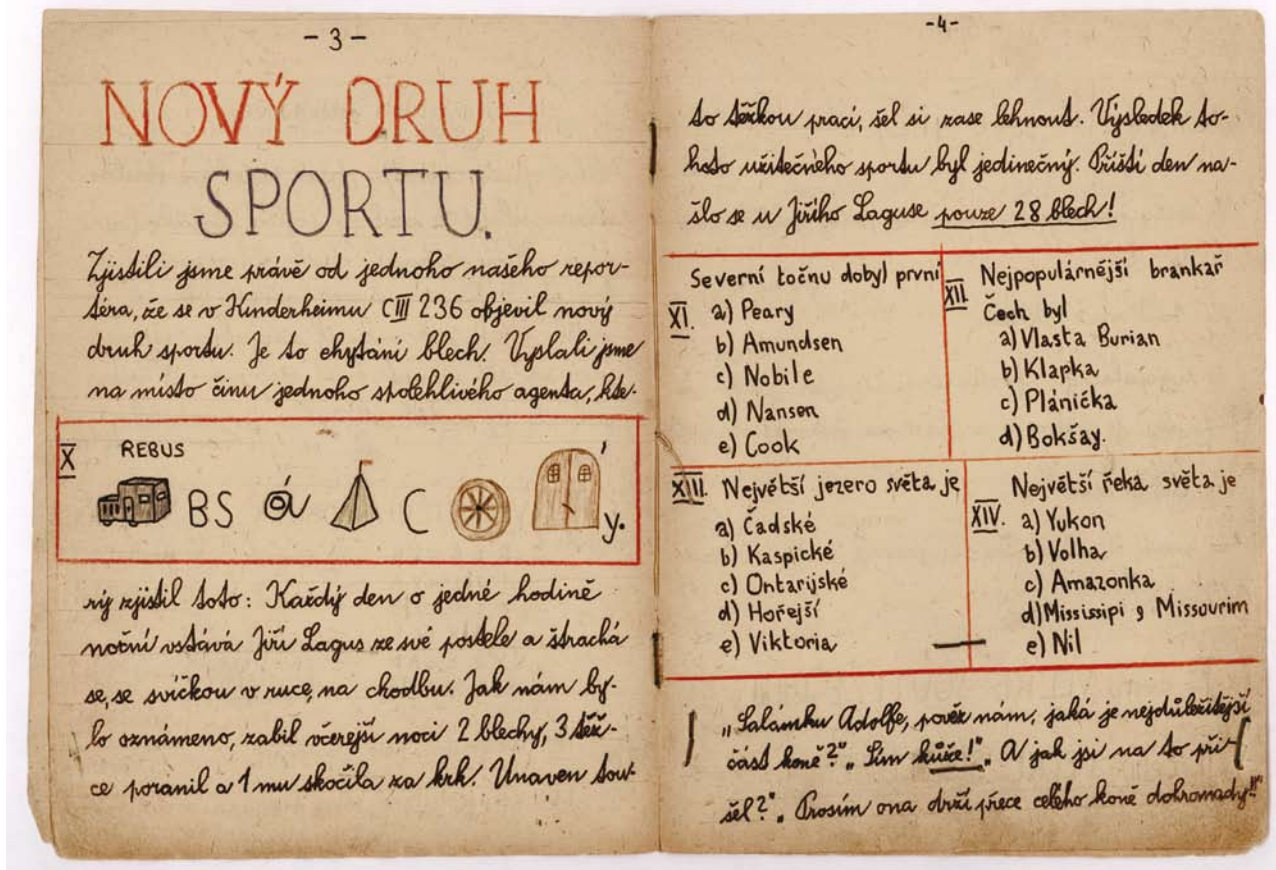 - 3 -
NOVÝ DRUH
SPORTU.
Zjistili jsme právě od jednoho našeho repor-
téra, že se v Kinderheimu CIII 236 objevil nový
druh sportu. Je to chytání blech. Vyslali jsme
na místo činu jednoho spolehlivého agenta, kte-
X REBUS
BS á C ́ y.
rý zjistil toto: Každý den o jedné hodině
noční vstává Jiří Lagus ze své postele a štrachá
se, se svíčkou v ruce, na chodbu. Jak nám by-
lo oznámeno, zabil včerejší noci 2 blechy, 3 těž-
ce poranil a 1 mu skočila za krk. Unaven tou-
-4-
to těžkou prací, šel si zase lehnout. Výsledek to-
hoto užitečného sportu byl jedinečný. Příští den na-
šlo se u Jiřího Laguse pouze 28 blech!
XI. Severní točnu dobyl první
a) Peary
b) Amundsen
c) Nobile
d) Nansen
e) Cook
XII. Nejpopulárnější brankař
Čech byl
a) Vlasta Burian
b) Klapka
c) Plánička
d) Bokšay.
XIII. Největší jezero světa je
a) Čadské
b) Kaspické
c) Ontarijské
d) Hořejší
e) Viktoria
XIV. Největší řeka světa je
a) Yukon
b) Volha
c) Amazonka
d) Mississipi s Missourim
e) Nil
„Salámku Adolfe, pověz nám, jaká je nejdůležitější
část koně?" „Sím kůže!" „A jak jsi na to při-
šel?" „Prosím ona drží přece celého koně dohromady!!"